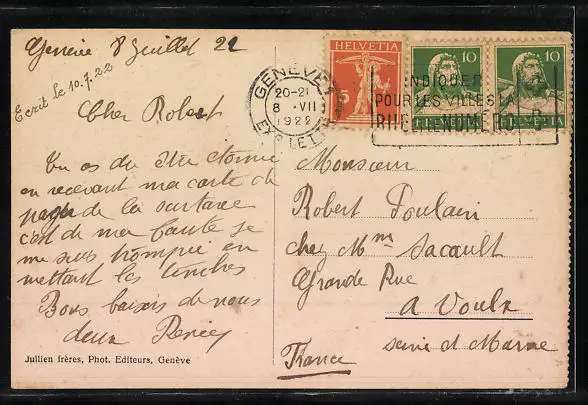 Genève 8 Juillet 22
Ecrit le 10.7.22
Cher Robert
Tu as du être étonné
en recevant ma carte de
payer de la surtaxe
c'est de ma faute je
me suis trompée en
mettant les timbres
Bons baisers de nous
deux Renée
Jullien frères, Phot. Editeurs, Genève
HELVETIA
5
10
HELVETIA
10
HELVETIA
GENÈVE 1
20-21
8 · VII
1922
EXP. LET.
INDIQUER
POUR LES VILLES LA
RUE LE NUMERO
Monsieur
Robert Poulain
chez Mme Sacault
Grande Rue
A Voulx
Seine et Marne
France